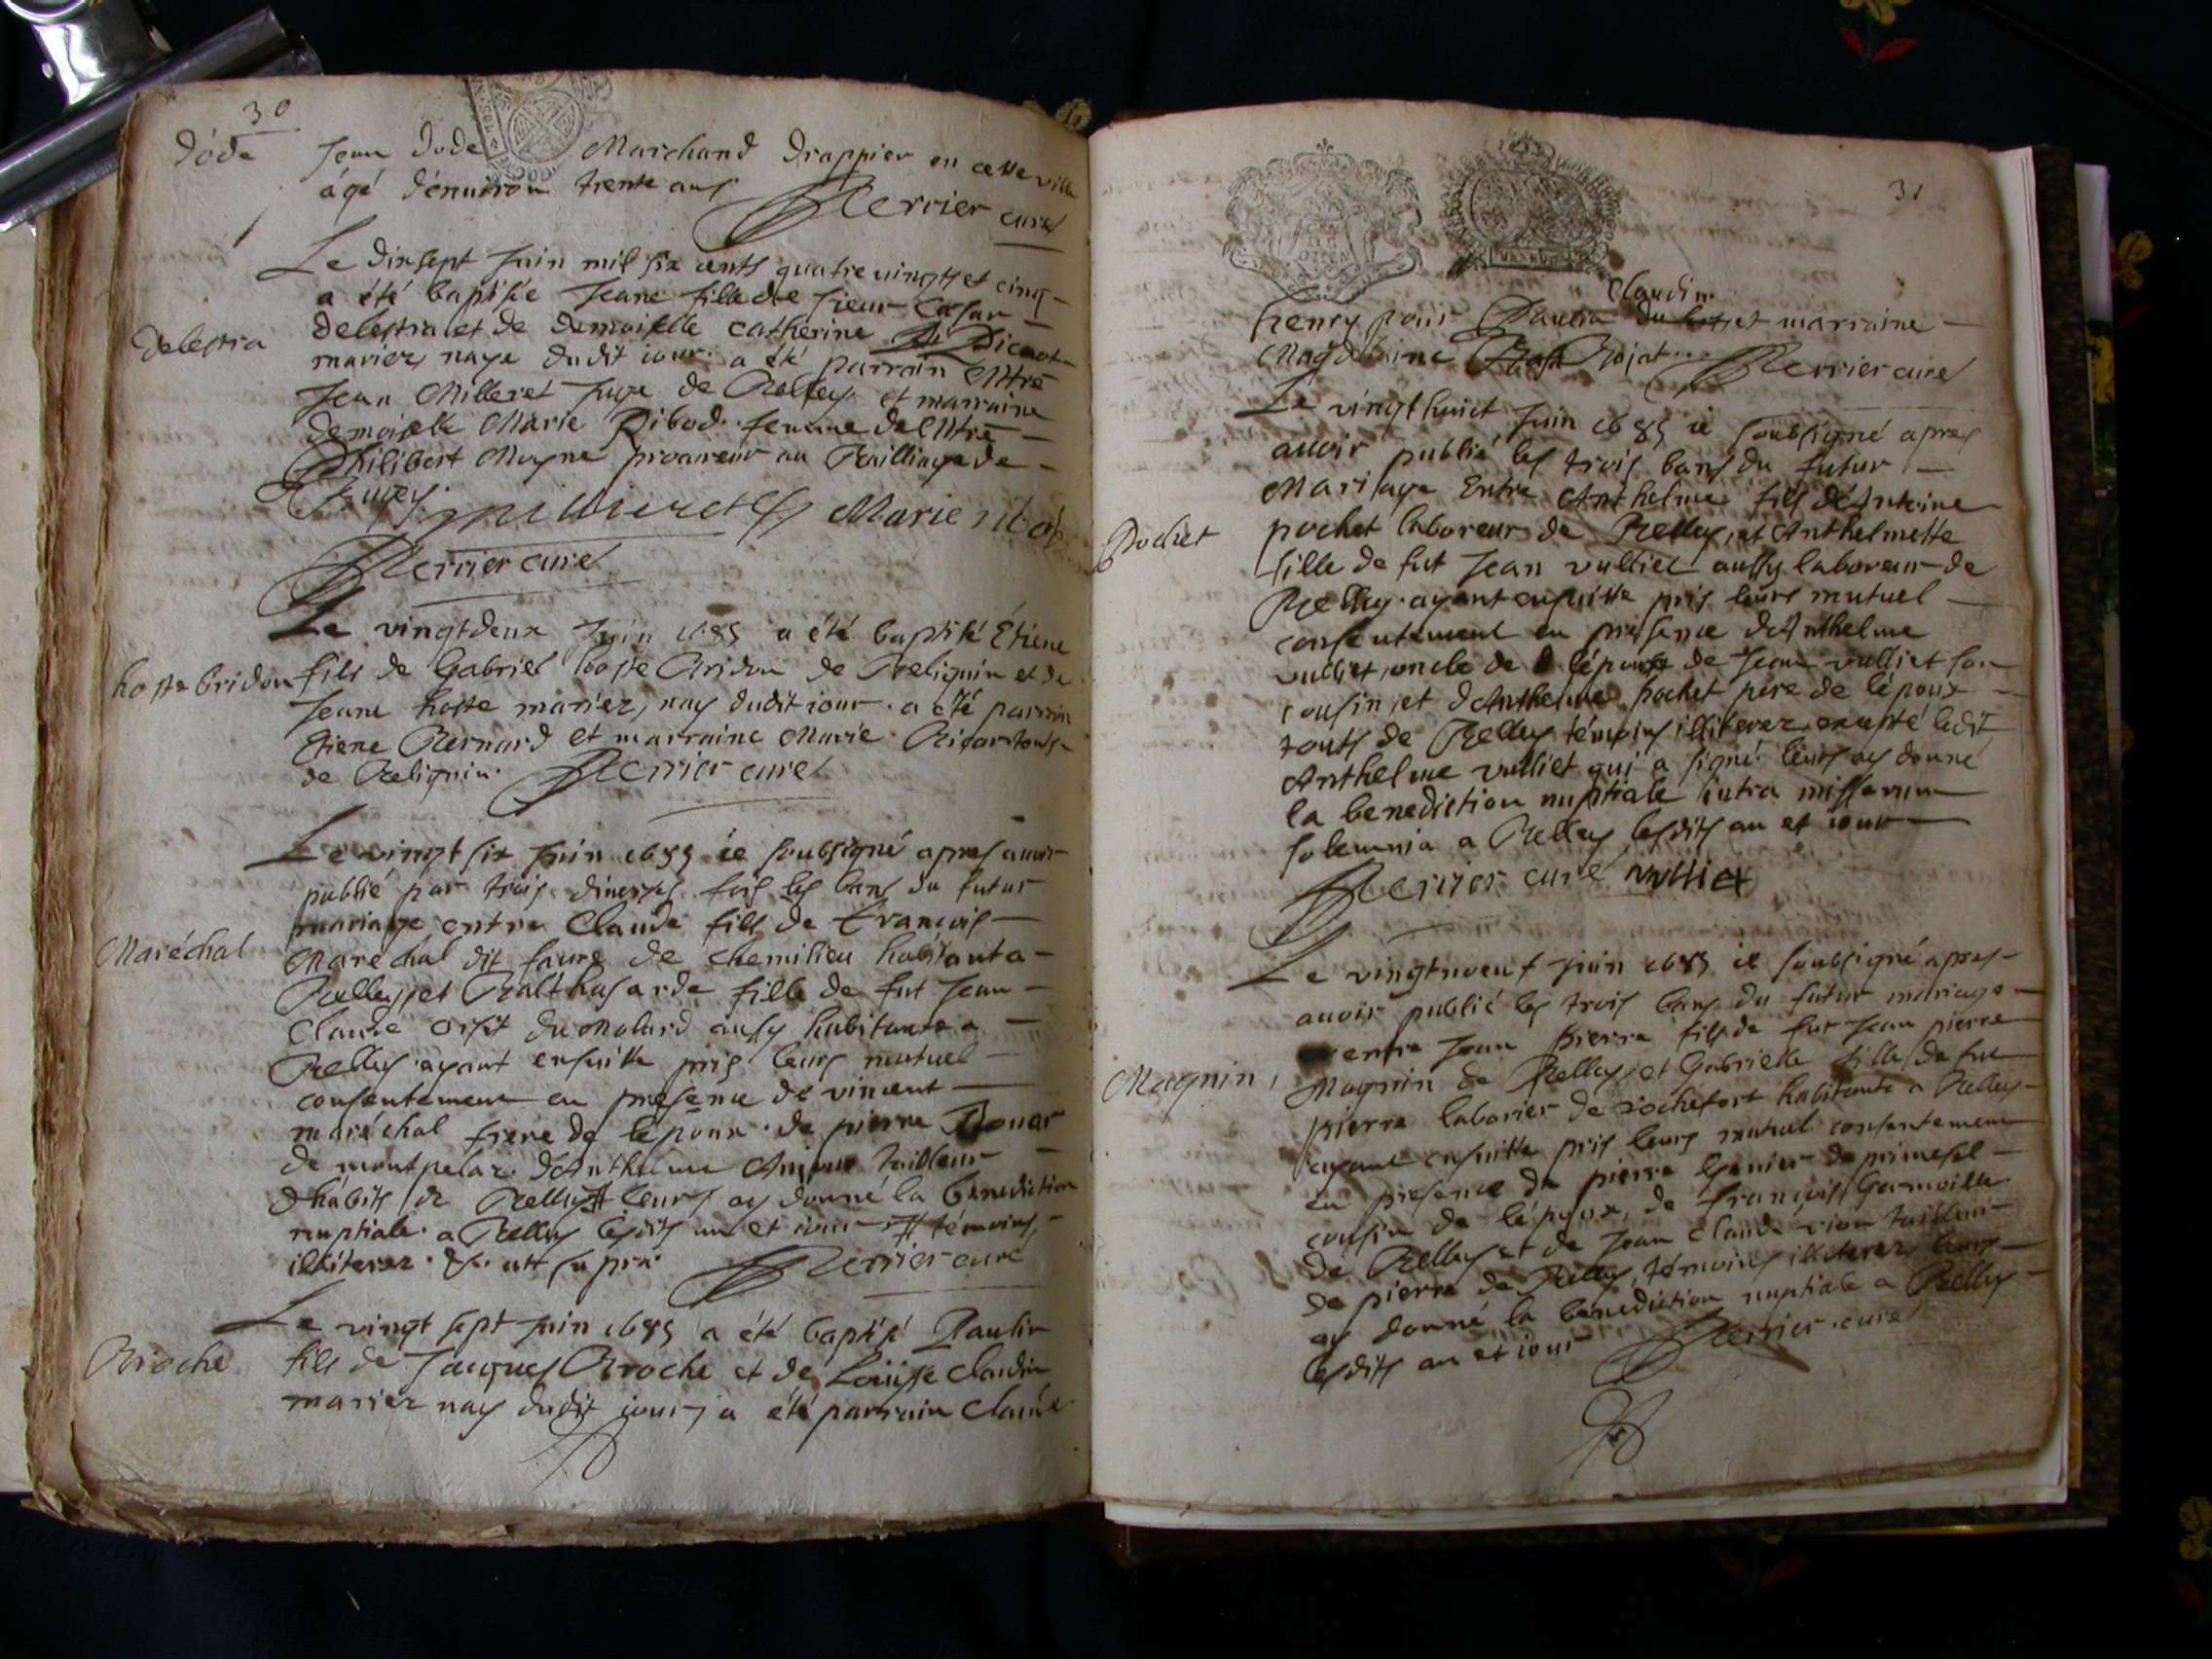 30
Dode
Jean Dode Marchand Drappier en cette ville
âgé d'enuiron trente ans
Perrier curé
Le dixsept Juin mil six cents quatre uingts et cinq
Delestra
a été baptisée Jeane fille de sieur Cesar
delestra et de demoiselle catherine
mariez naye dudit iour. a été parrain Mtre
Jean Milleret Juge de Belley. et marraine
demoiselle Marie Ribod. femme de Mtre
Philibert Moyne procureur au Bailliage de
Bugey.
Milleret Marie ribod
Perrier curé
Le vingtdeux Juin 1685 a été baptisé Étiene
hoste bridon
fils de Gabriel hoste Bridon de Belignin et de
Jeane hoste mariez, nay dudit iour. a été parrain
Etiene Bernard et marraine Marie
de Belignin. Perrier curé
Le vingt six Juin 1685 ie soubsigné apres auoir
publié par trois diuerses fois les bans du futur
mariage entre Claude fils de François
Maréchal
Maréchal dit faure de chemilieu habitant a
Belley, et Balthasarde fille de fut Jean
Claude du Molard aussy habitante a
Belley. ayant ensuitte pris leurs mutuel
consentement en presence de vincent
maréchal frere de lépoux. de pierre
de montpelaz. d'Anthelme tailleur
d'habits de Belley # leurs ay donné la benediction
nuptiale. a Belley lesdits an et iour # témoins,
illiterez. &. utt supra. Perrier curé
Le vingt sept Juin 1685 a été baptisé Paulin
Brioche
fils de Jacques Broche et de Loüise claudin
mariez nay dudit iour, a été parrain Claude
31
Claudin
henry pour Paulin et marraine
Magdelaine Rojat... Perrier curé
Le vingthuict Juin 1685 ie soubsigné apres
auoir publié les trois bans du futur
Mariage Entre Anthelme fils d'Antoine
Pochet
pochet laboreur de Belley, et Anthelmette
fille de fut Jean vulliet aussy laboreur de
Belley. ayant ensuitte pris leurs mutuel
consentement en presence d'Anthelme
vulliet, oncle de lépouse de Jean vulliet son
cousin, et d'Anthelme pochet pere de lépoux
touts de Belley témoins illiterez excepté ledit
Anthelme vulliet qui a signé. leurs ay donné
la benediction nuptiale intra missarum
solemnia a Belley lesdits an et iour
Perrier curé vulliet
Le vingtneuf Juin 1685 ie soubsigné apres
auoir publié les trois bans du futur mariage
entre Jean pierre fils de fut Jean pierre
Magnin,
Magnin de Belley, et Gabrielle fille de fut
pierre laborier de rochefort habitante a Belley
ayant ensuitte pris leurs mutuel consentement
en presence de pierre de
cousin de lépoux, de françois
de Belley et de Jean Claude tailleur
de pierre de Belley, témoins illiterez leurs
ay donné la benediction nuptiale a Belley
lesdits an et iour Perrier. curé